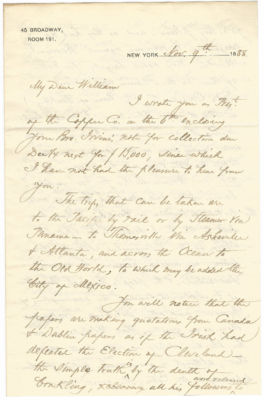 45 BROADWAY,
ROOM 191.
NEW YORK Nov. 9th 1888
My Dear William
I wrote you as Prest
of the Copper Co. on the 6th enclosing
your Bro. note for collection due
next for $15,000, since which
I have not had the pleasure to hear from
you.
The trips that can be taken are
to the Pacific by rail or by Steamer via
Panama — to Thomasville via Asheville
& Atlanta, and across the Ocean to
the Old World, to which may be added the
City of Mexico.
You will notice that the
papers are making quotations from Canada
& Dublin papers as if the Irish had
defeated the Election of Cleveland —
the simple truth is by the death of
and
Conkling, all his following